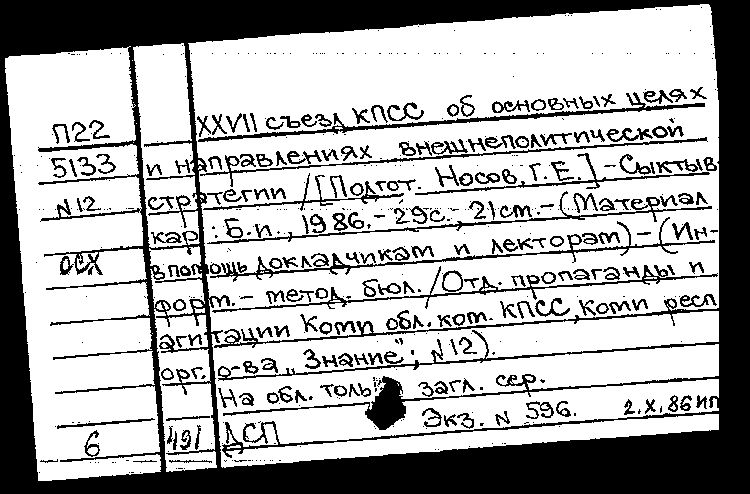 П22 XXVII съезд КПСС об основных целях
5133 и направлениях внешнеполитической
N12 стратегии /[Подгот. Носов, Г.Е.].-Сыктыв-
кар : Б.и., 1986.-29с., 21ст.-(Материал
ОСХ в помощь докладчикам и лекторам)-(Ин-
форм.- метод. бюл. /Отд. пропаганды и
агитации Коми обл. ком. КПСС, Коми респ
орг. о-ва „Знание"; N12).
На обл. толь загл. сер.
Экз. N 596. 2.X.86
6 491 ДСП